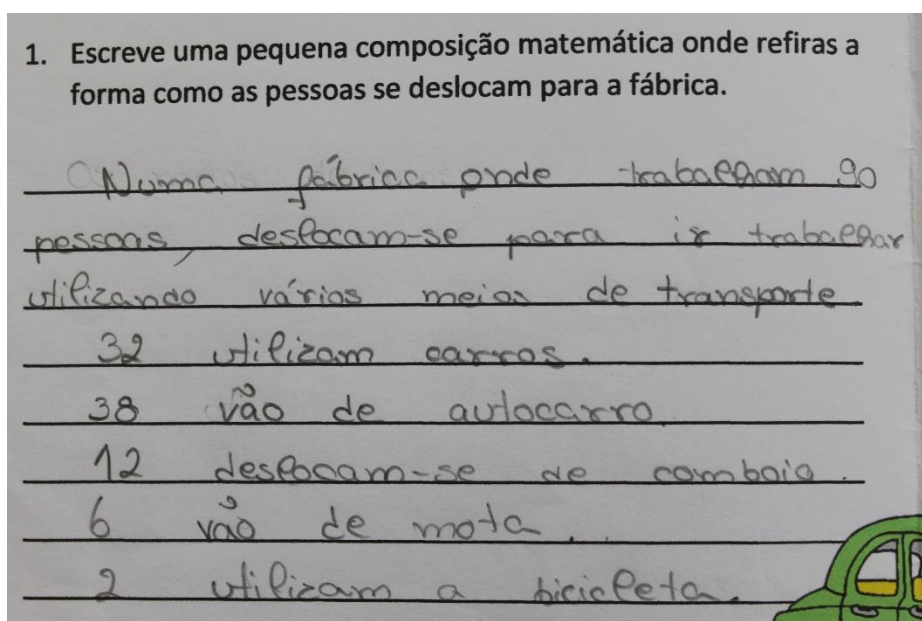 1. Escreve uma pequena composição matemática onde refiras a
forma como as pessoas se deslocam para a fábrica.
Numa fábrica onde trabalham 90
pessoas, deslocam-se para ir trabalhar
utilizando vários meios de transporte
32 utilizam carros.
38 vão de autocarro
12 deslocam-se de comboio.
6 vão de mota.
2 utilizam a bicicleta.